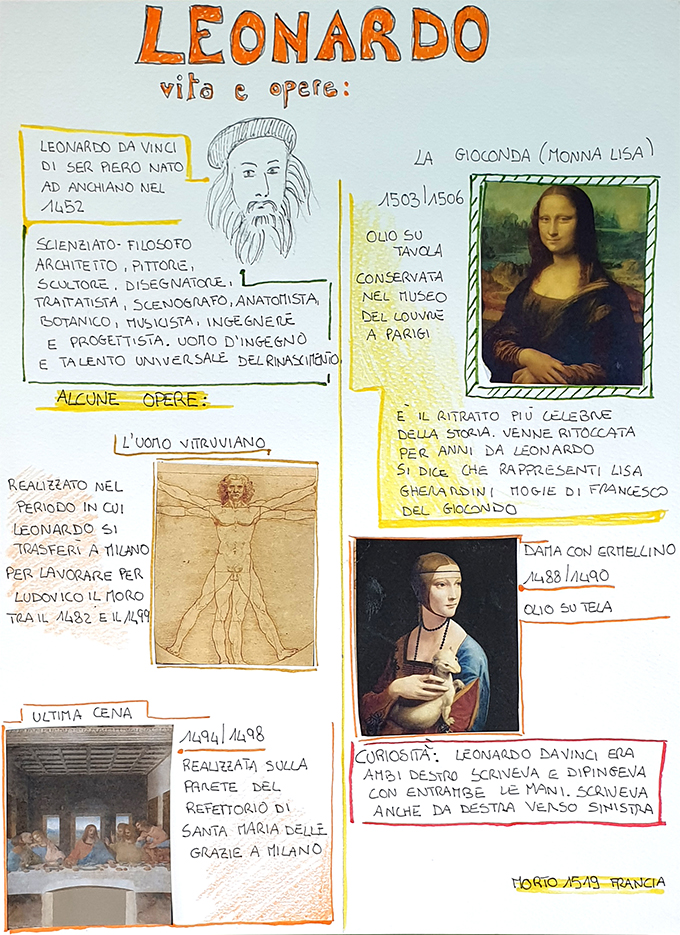 LEONARDO
vita e opere:
LEONARDO DA VINCI
DI SER PIERO NATO
AD ANCHIANO NEL
1452
SCIENZIATO- FILOSOFO
ARCHITETTO, PITTORE,
SCULTORE, DISEGNATORE,
TRATTATISTA, SCENOGRAFO, ANATOMISTA,
BOTANICO, MUSICISTA, INGEGNERE
E PROGETTISTA. UOMO D'INGEGNO
E TALENTO UNIVERSALE DEL RINASCIMENTO
ALCUNE OPERE:
L'UOMO VITRUVIANO
REALIZZATO NEL
PERIODO IN CUI
LEONARDO SI
TRASFERI A MILANO
PER LAVORARE PER
LUDOVICO IL MORO
TRA IL 1482 E IL 1499
ULTIMA CENA
1494/1498
REALIZZATA SULLA
PARETE DEL
REFETTORIO DI
SANTA MARIA DELLE
GRAZIE A MILANO
LA GIOCONDA (MONNA LISA)
1503/1506
OLIO SU
TAVOLA
CONSERVATA
NEL MUSEO
DEL LOUVRE
A PARIGI
È IL RITRATTO PIÙ CELEBRE
DELLA STORIA. VENNE RITOCCATA
PER ANNI DA LEONARDO
SI DICE CHE RAPPRESENTI LISA
GHERARDINI MOGIE DI FRANCESCO
DEL GIOCONDO
DAMA CON ERMELLINO
1488/1490
OLIO SU TELA
CURIOSITÀ: LEONARDO DA VINCI ERA
AMBI DESTRO SCRIVEVA E DIPINGEVA
CON ENTRAMBE LE MANI. SCRIVEVA
ANCHE DA DESTRA VERSO SINISTRA
MORTO 1519 FRANCIA